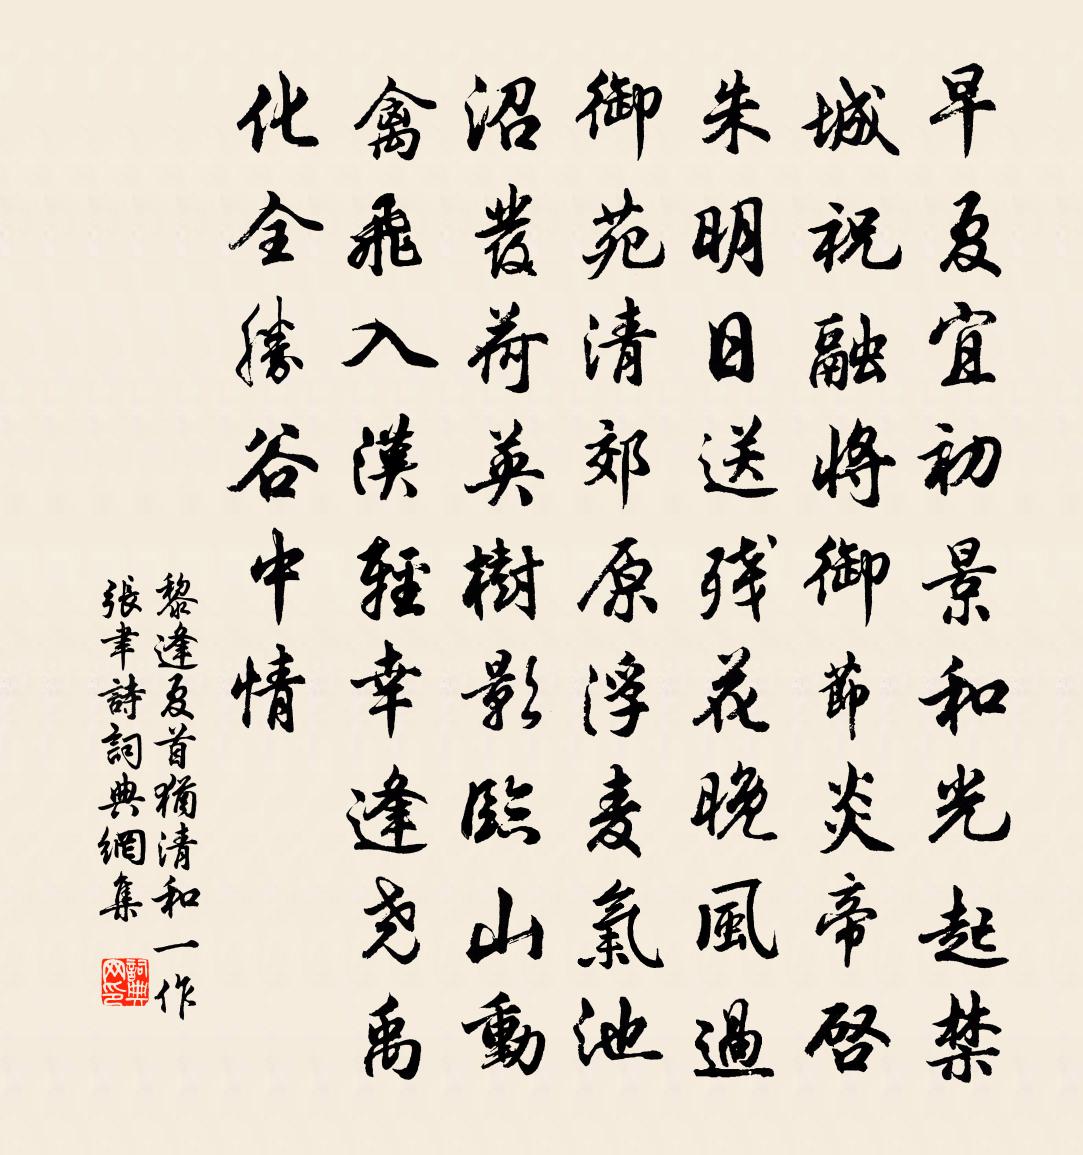 早夏宜初景和光起禁
城祝融將御節炎帝啓
朱明日送殘花晚風過
御苑清郊原浮麦氣池
沼發荷英樹影臨山動
禽飛入漢輕幸逢堯禹
化全勝谷中情
黎逢夏首猶清和一作
張聿詩詞典網集
詞典網印